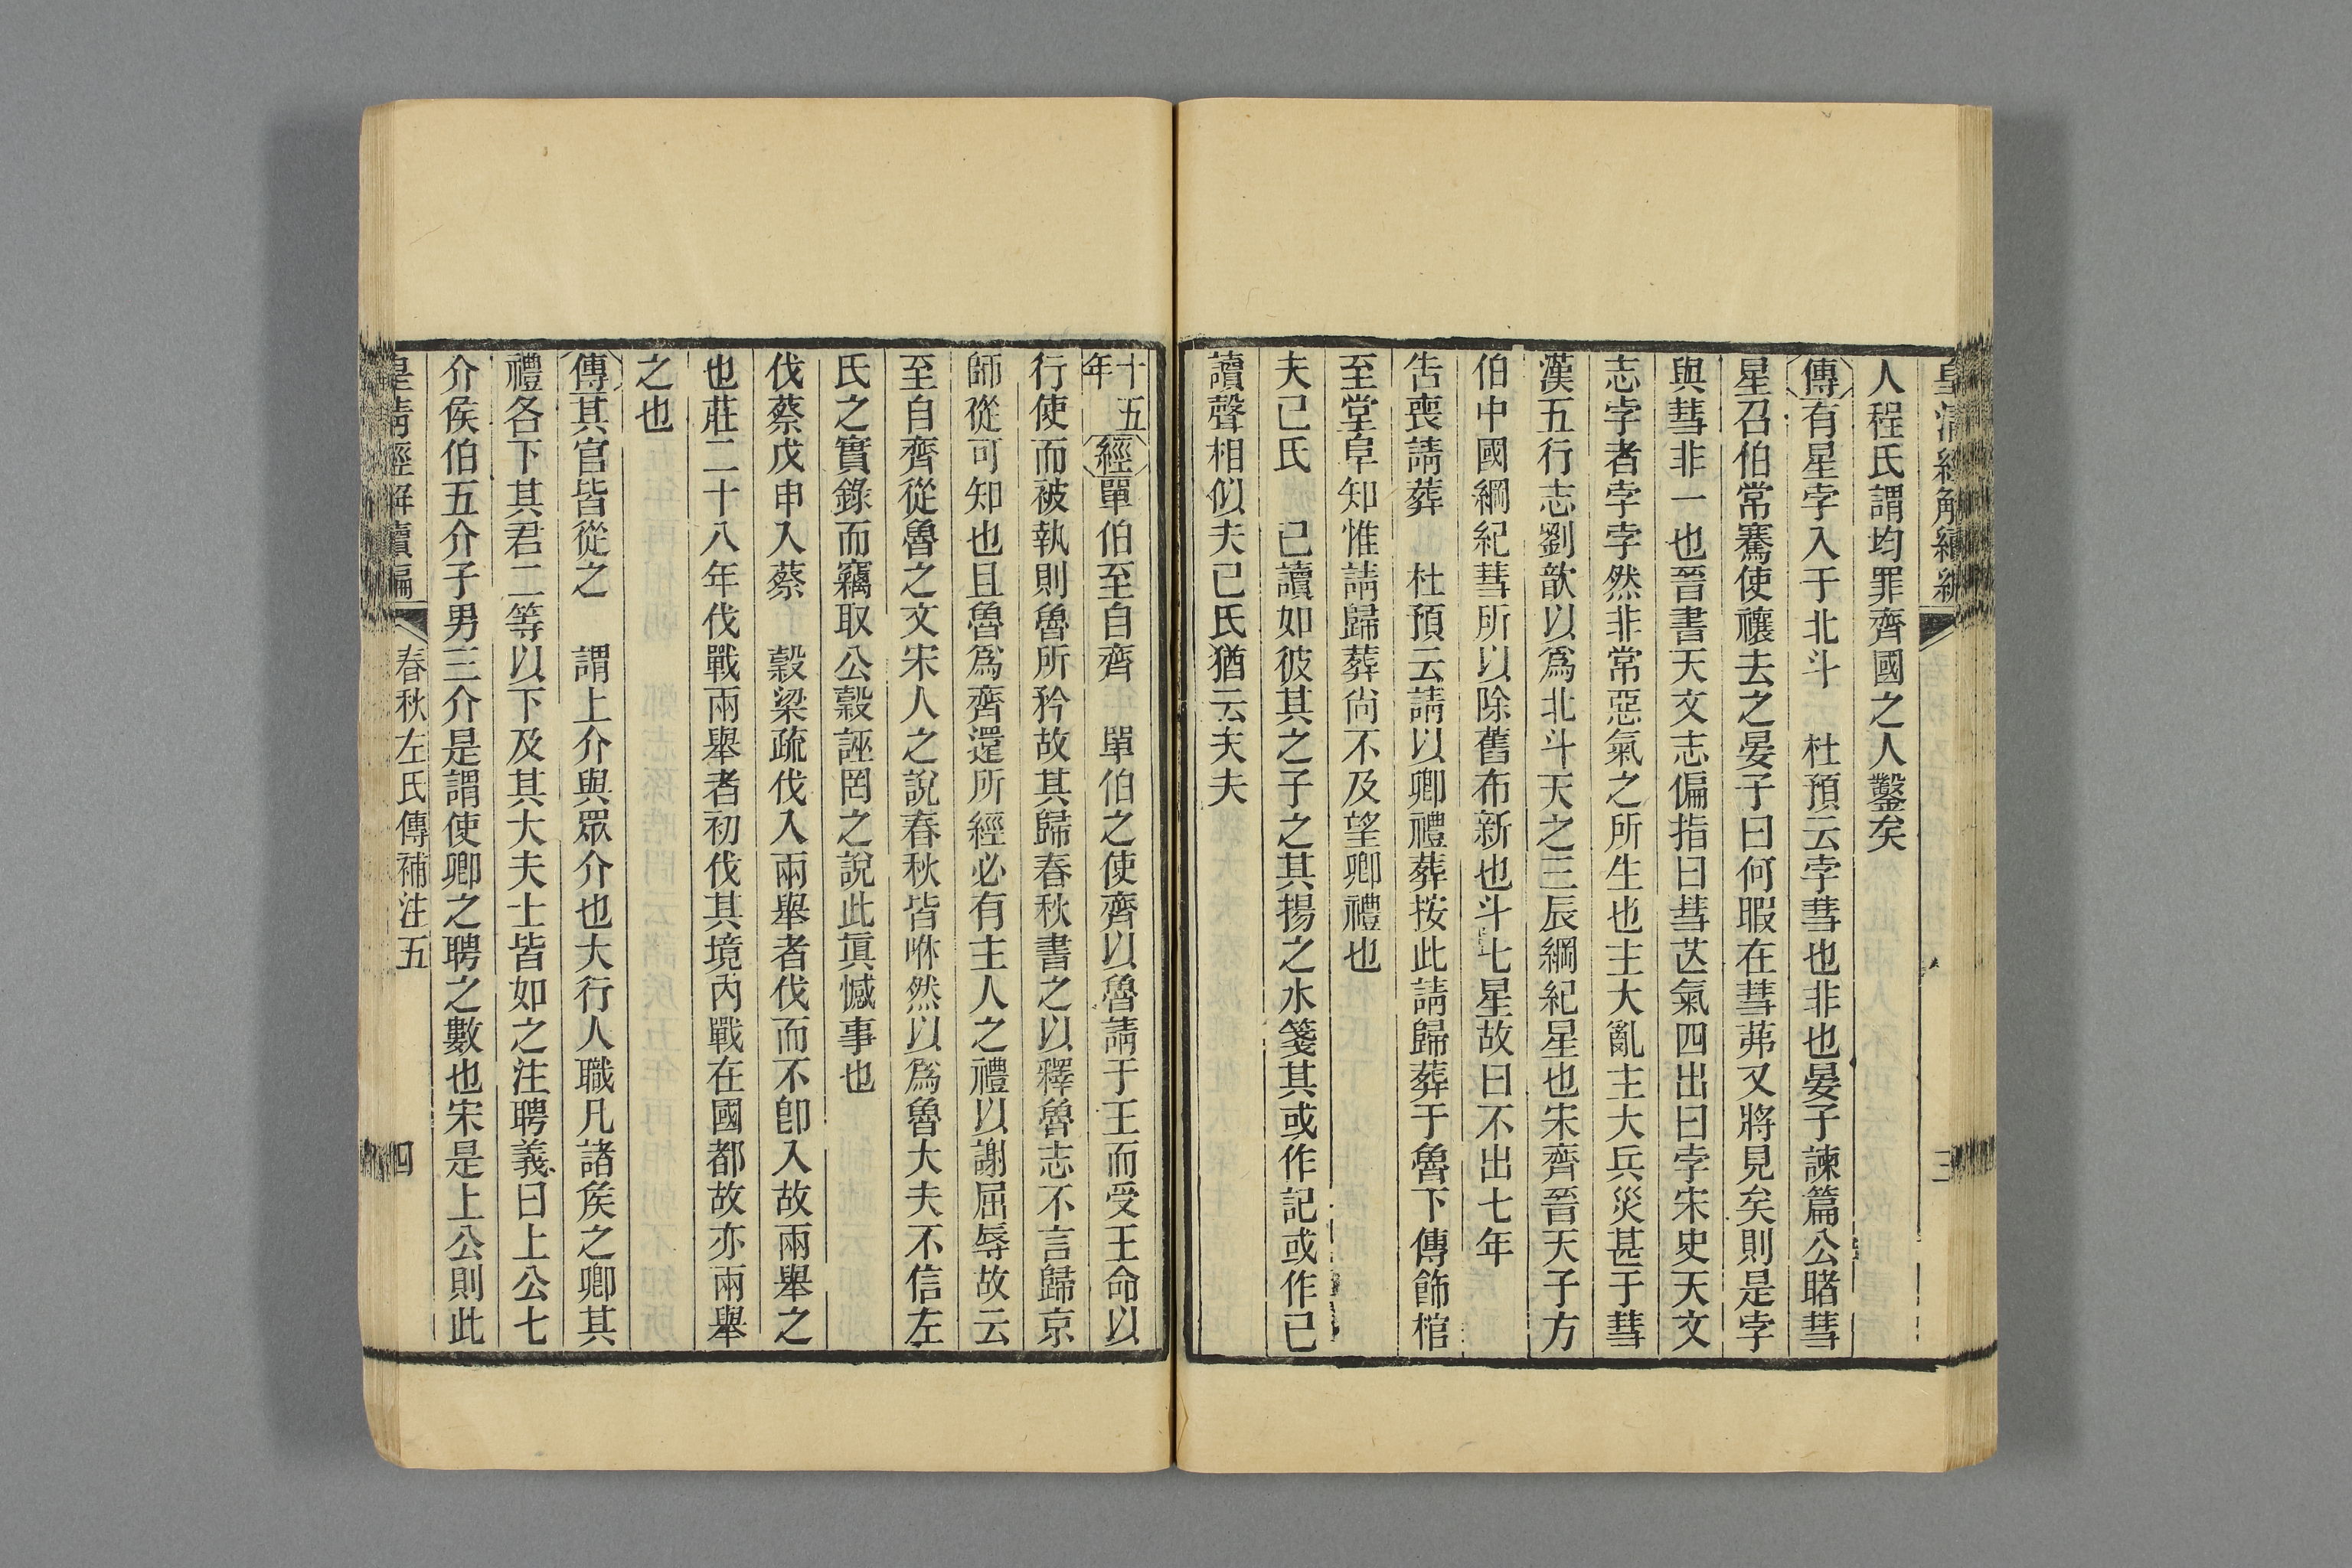 皇清經解續編
三
人程氏謂均罪齊國之人鑿矣
傳有星孛入于北斗　杜預云孛彗也非也晏子諫篇公睹彗
星召伯常騫使禳去之晏子曰何暇在彗茀又將見矣則是孛
與彗非一也晉書天文志偏指曰彗芒氣四出曰孛宋史天文
志孛者孛孛然非常惡氣之所生也主大亂主大兵災甚于彗
漢五行志劉歆以爲北斗天之三辰綱紀星也宋齊晉天子方
伯中國綱紀彗所以除舊布新也斗七星故曰不出七年
吿喪請葬　杜預云請以卿禮葬按此請歸葬于魯下傳飾棺
至堂阜知惟請歸葬尙不及望卿禮也
夫己氏　己讀如彼其之子之其揚之水箋其或作記或作己
讀聲相似夫己氏猶云夫夫
十五年經單伯至自齊　單伯之使齊以魯請于王而受王命以
行使而被執則魯所矜故其歸春秋書之以釋魯志不言歸京
師從可知也且魯爲齊還所經必有主人之禮以謝屈辱故云
至自齊從魯之文宋人之說春秋皆咻然以爲魯大夫不信左
氏之實錄而竊取公穀誣罔之說此眞憾事也
伐蔡戊申入蔡　穀梁疏伐入兩舉者伐而不卽入故兩舉之
也莊二十八年伐戰兩舉者初伐其境內戰在國都故亦兩舉
之也
傳其官皆從之　謂上介與眾介也大行人職凡諸侯之卿其
禮各下其君二等以下及其大夫士皆如之注聘義曰上公七
介侯伯五介子男三介是謂使卿之聘之數也宋是上公則此
皇清經解續編
春秋左氏傳補注五
四